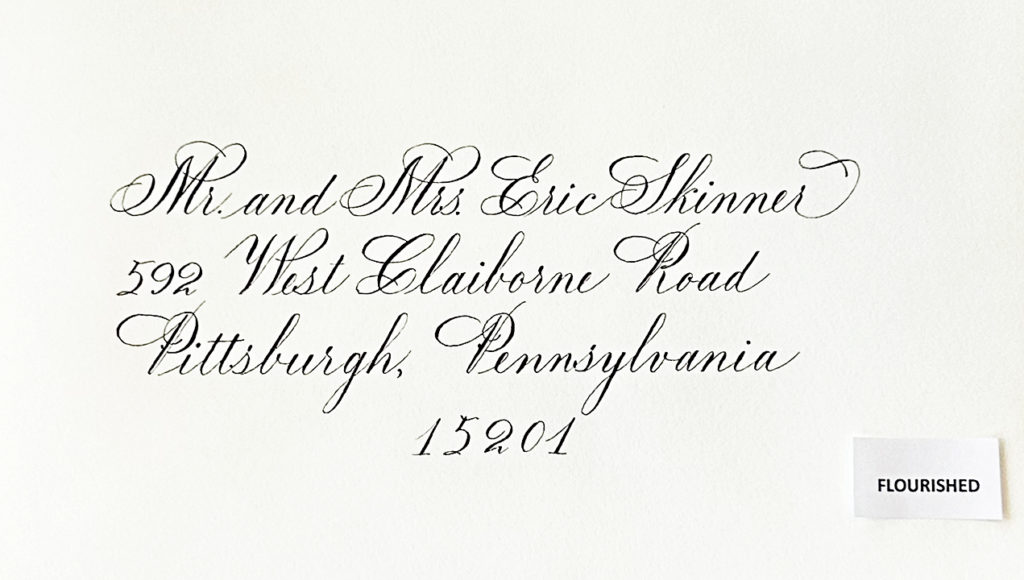 Mr. and Mrs. Eric Skinner
592 West Claiborne Road
Pittsburgh, Pennsylvania
15201
FLOURISHED